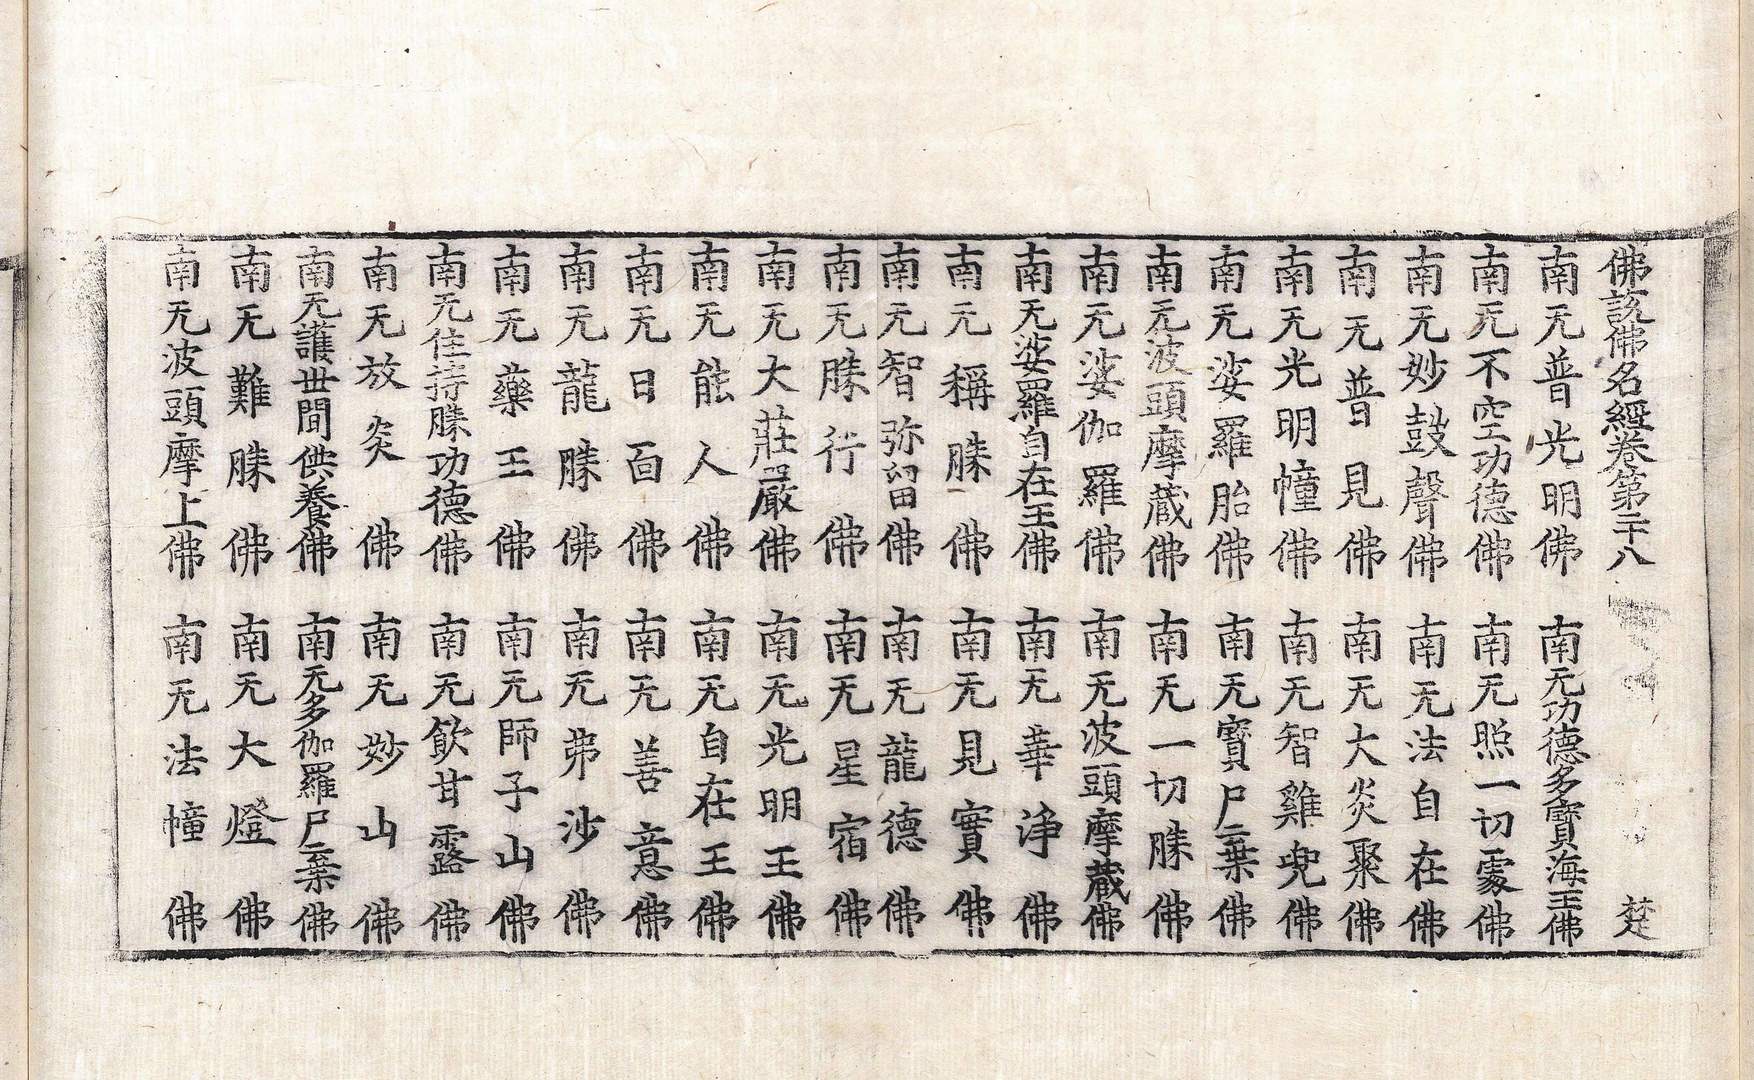 佛說佛名經卷第二十八　楚
南无普光明佛　南无功德多寶海王佛
南无不空功德佛　南无照一切處佛
南无妙鼓聲佛　南无法自在佛
南无普見佛　南无大炎聚佛
南无光明幢佛　南无智雞兜佛
南无娑羅胎佛　南无寶尸棄佛
南无波頭摩藏佛　南无一切勝佛
南无娑伽羅佛　南无波頭摩藏佛
南无娑羅自在王佛　南无華淨佛
南无稱勝佛　南无見實佛
南无智弥留佛　南无龍德佛
南无勝行佛　南无星宿佛
南无大莊嚴佛　南无光明王佛
南无能人佛　南无自在王佛
南无日面佛　南无善意佛
南无龍勝佛　南无弗沙佛
南无藥王佛　南无師子山佛
南无住持勝功德佛　南无飲甘露佛
南无放炎佛　南无妙山佛
南无護世間供養佛　南无多伽羅尸棄佛
南无難勝佛　南无大燈佛
南无波頭摩上佛　南无法幢佛